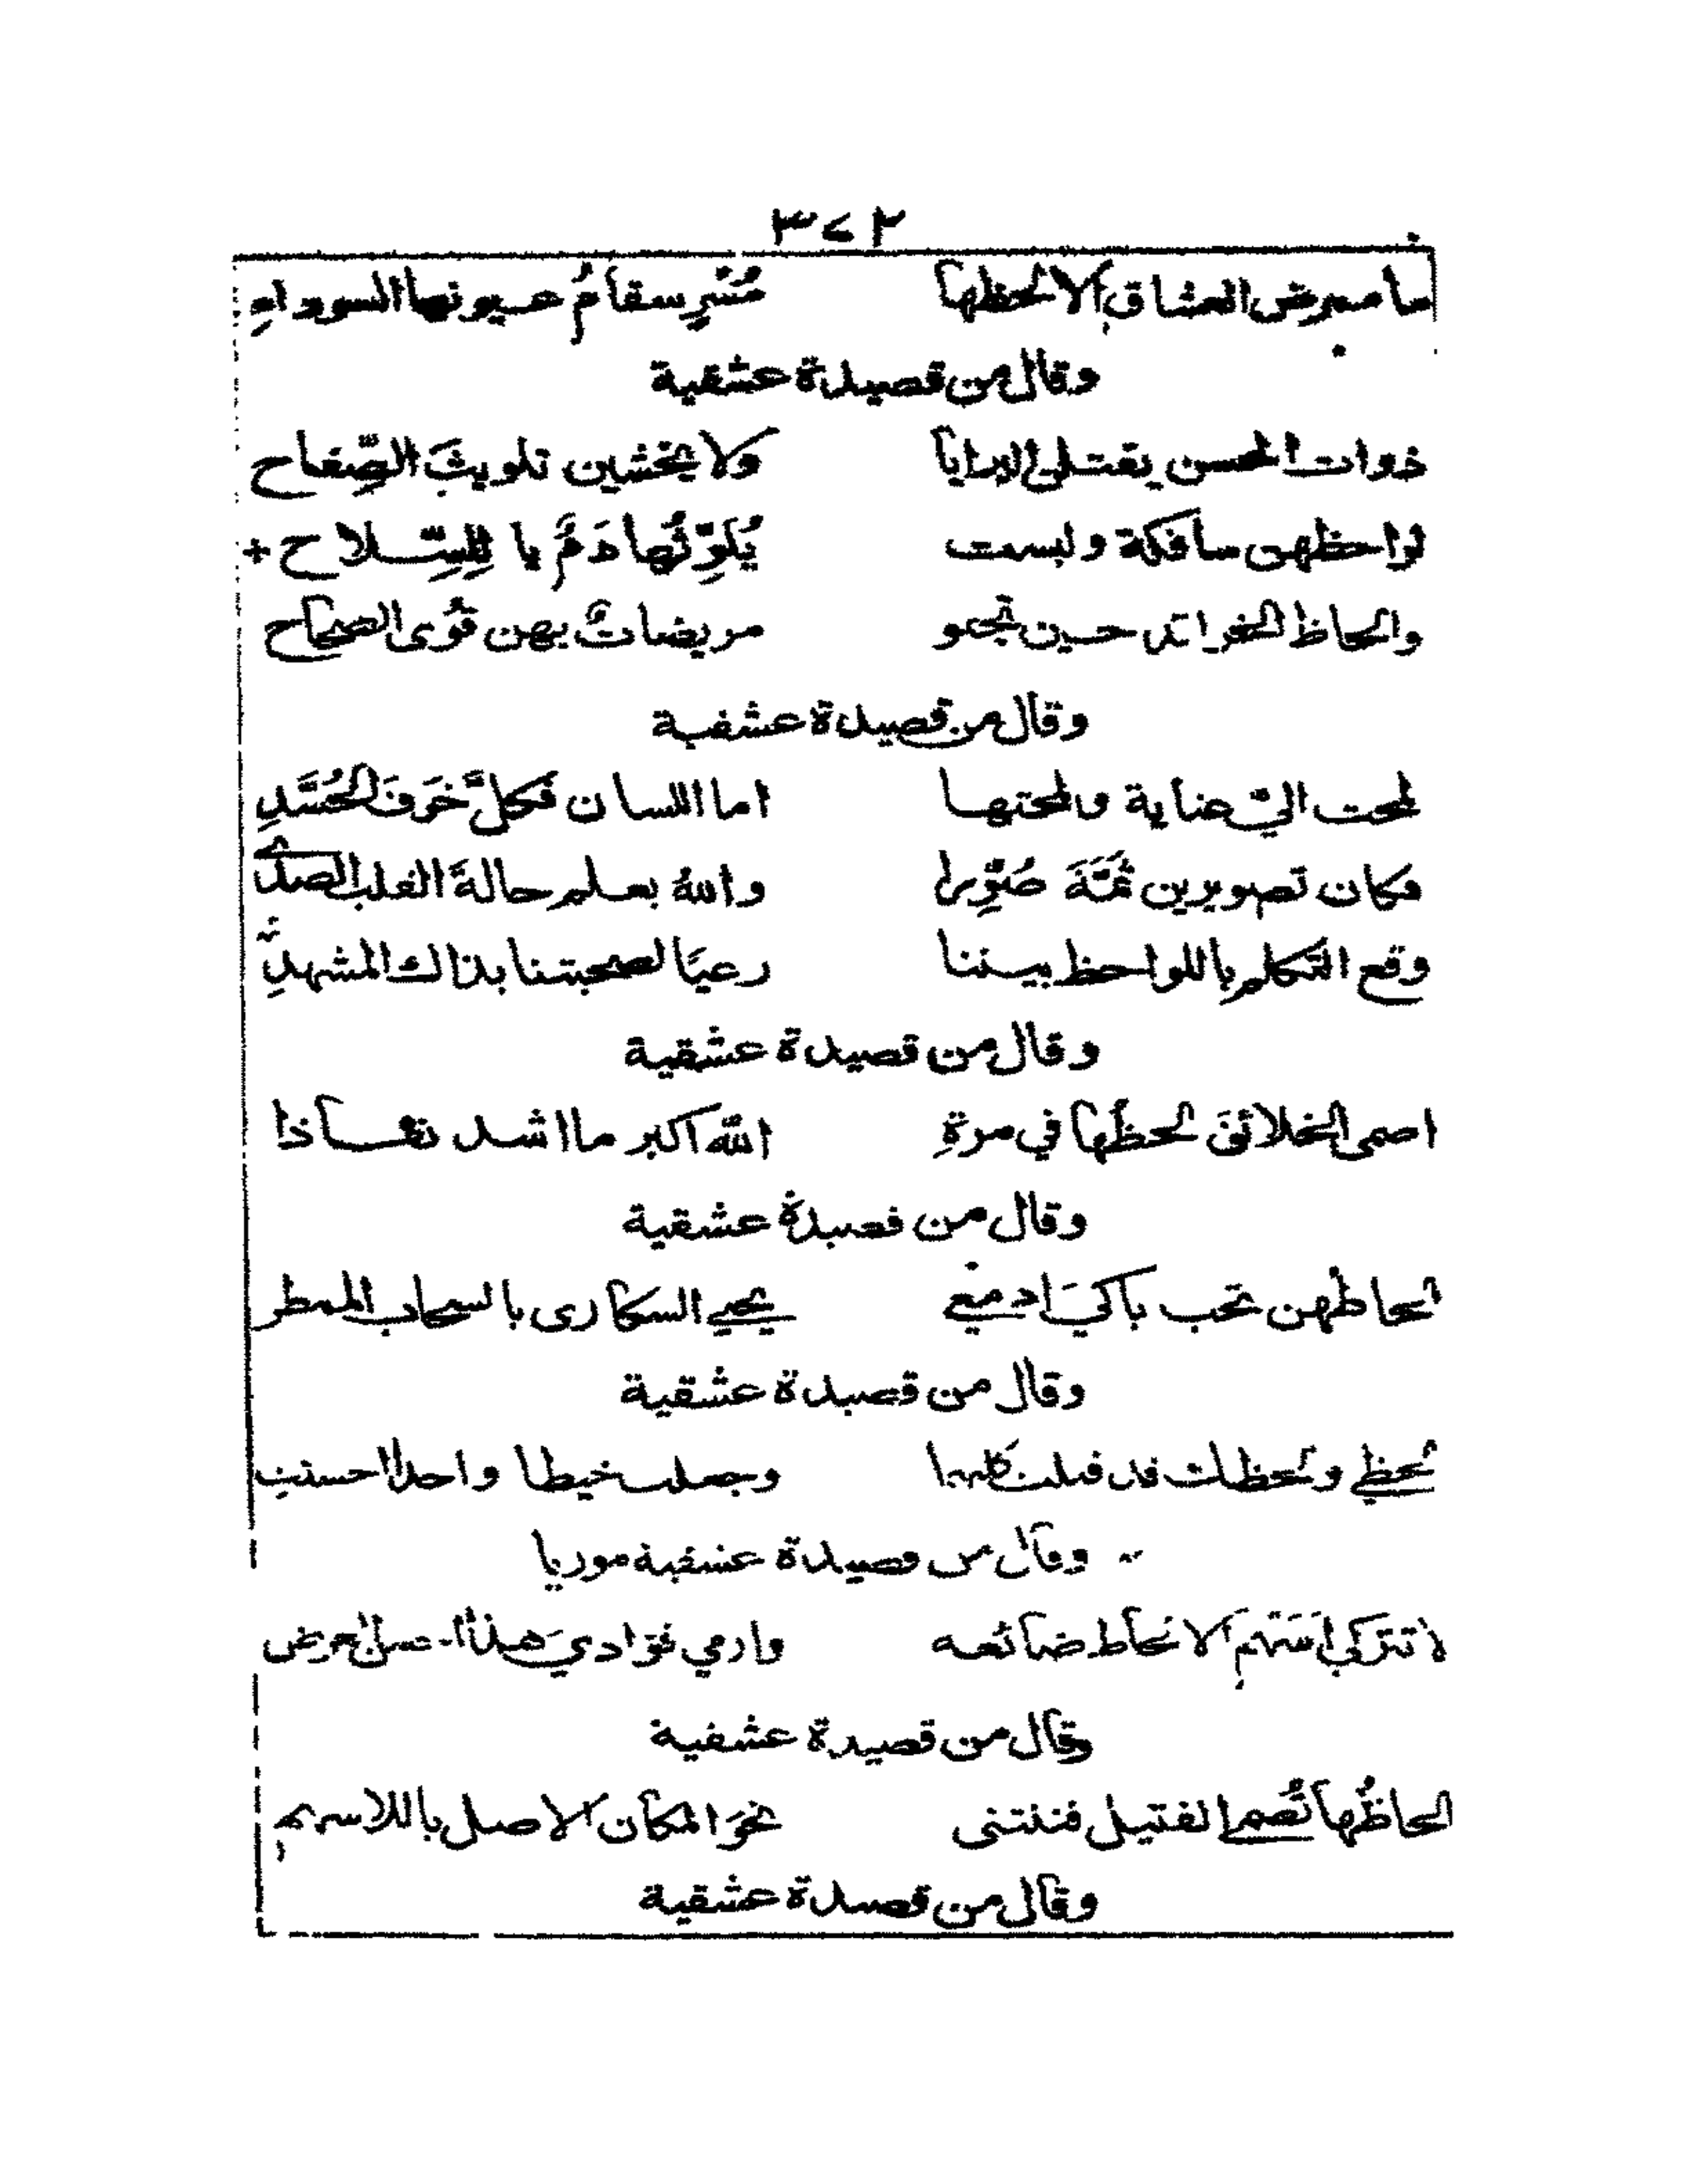 ٣٧٢
ما ممرض العشاق إلا لحظها مُسْرٍ سقامُ عيونها السوداءِ
وقال من قصيدة عشقية
ذوات الحسن يقتلن البرايا ولا يخشين تلويثَ الصِّفاح
لواحظهن سافكة وليست يُلوِّثُها دَمٌ يا للسِّلاح +
والحاظ الخرائد حين تجنو مريضاتٌ بهن قُوى الصحاح
وقال من قصيدة عشقية
لمحت اليّ عناية ولمحتها اما اللسان فكلَّ خَوفَ الحُسَّدِ
فكان تصويرين ثَمَّةَ صُوِّرا والله يعلم حالةَ القلب الصدى
وقع التكلم باللواحظ بيننا رعيًا لصحبتنا بذاك المشهدِ
وقال من قصيدة عشقية
اصمى الخلائقَ لحظُها في مرةٍ الله اكبر ما اشد نفاذا
وقال من قصيدة عشقية
الحاظهن تحب باكيَ ادمعي يحيي السكارى بالسحاب الممطر
وقال من قصيدة عشقية
لحظي ولحظك قد وجعلت خيطا واحدا احسنتِ
وقال من قصيدة عشقية موريا
لا تتركي اسهم الالحاظ ضائعه وارمي فؤادي هذا
وقال من قصيدة عشقية
الحاظُها تُصمي القتيل فننتنى نحوَ المكان الاصل
وقال من قصيدة عشقية